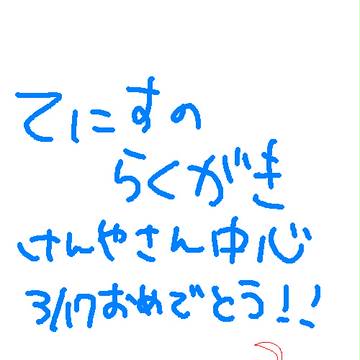 てにすの
らくがき
けんやさん中心
3/17おめでとう!!